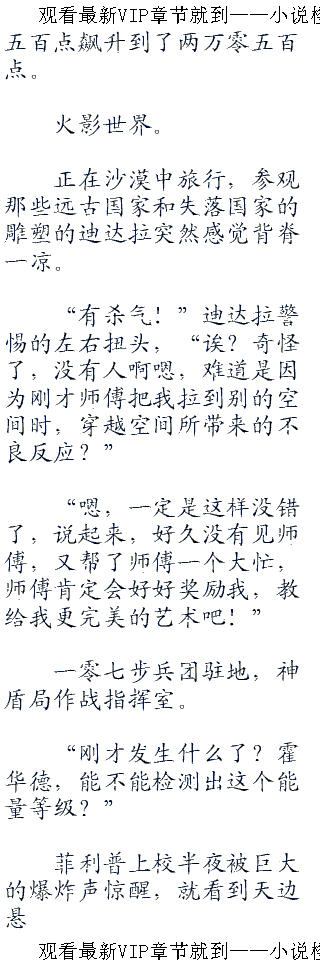 观看最新VIP章节就到——小说格
五百点飙升到了两万零五百
点。
火影世界。
正在沙漠中旅行，参观
那些远古国家和失落国家的
雕塑的迪达拉突然感觉背脊
一凉。
“有杀气！”迪达拉警
惕的左右扭头，“诶？奇怪
了，没有人啊嗯，难道是因
为刚才师傅把我拉到别的空
间时，穿越空间所带来的不
良反应？”
“嗯，一定是这样没错
了，说起来，好久没有见师
傅，又帮了师傅一个大忙，
师傅肯定会好好奖励我，教
给我更完美的艺术吧！”
一零七步兵团驻地，神
盾局作战指挥室。
“刚才发生什么了？霍
华德，能不能检测出这个能
量等级？”
菲利普上校半夜被巨大
的爆炸声惊醒，就看到天边
悬
观看最新VIP章节就到——小说格